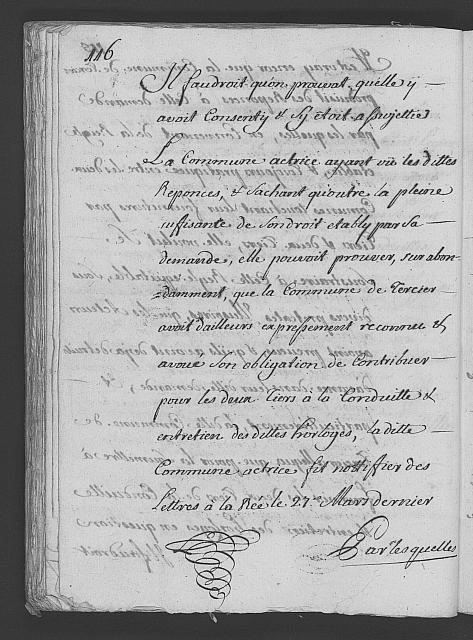 116
Il faudroit qu'on prouvat qu'elle y
avoit Consenty & s'y étoit assujettie
La Commune actrice ayant vû les dittes
Reponces, & sachant qu'outre la pleine
suffisante de son droit etably par sa
demande, elle pouvoit prouver, sur abon-
damment, que la Commune de Tercier
avoit d'ailleurs expressement reconnu &
avoue son obligation de Contribuer
pour les deux tiers à la Conduitte &
entretien des dittes horloges, la ditte
Commune actrice fit nottifier des
Lettres à la Réé le 27e Mars dernier
Par lesquelles